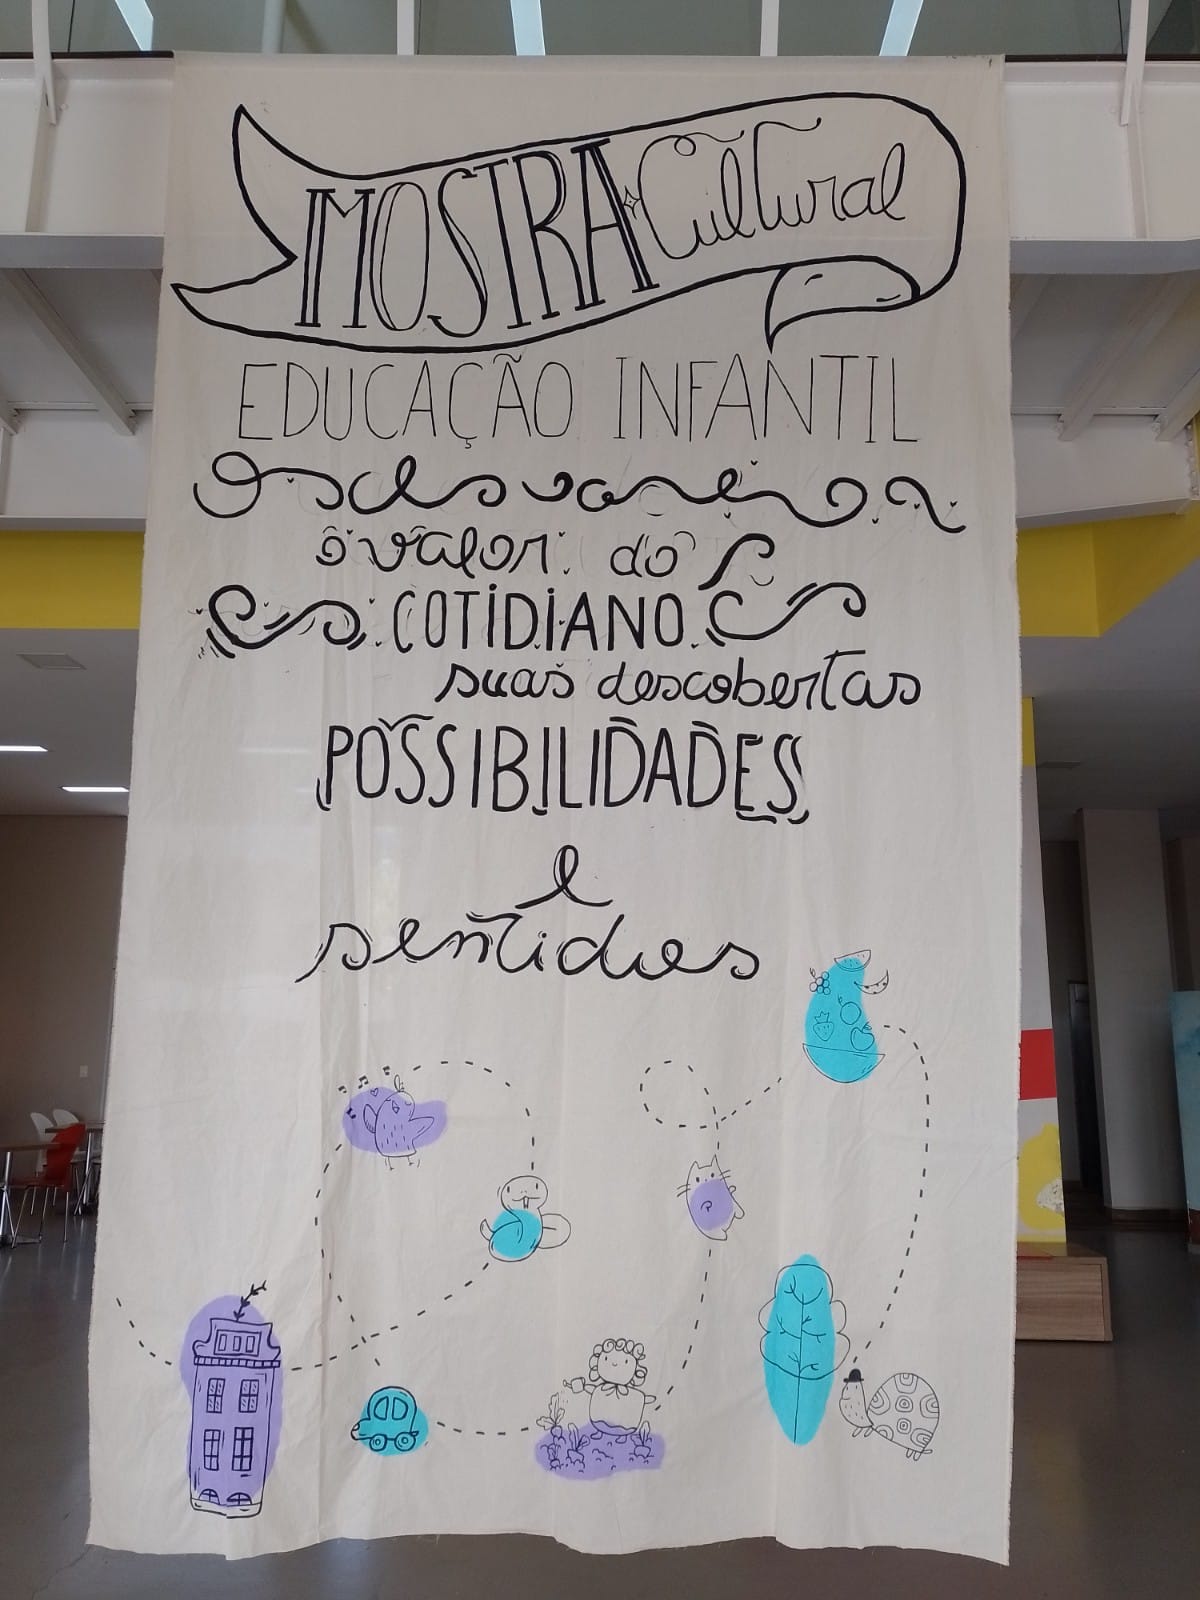 MOSTRA Cultural
EDUCAÇÃO INFANTIL
o valor do
COTIDIANO
suas descobertas
POSSIBILIDADES
e
sentidos